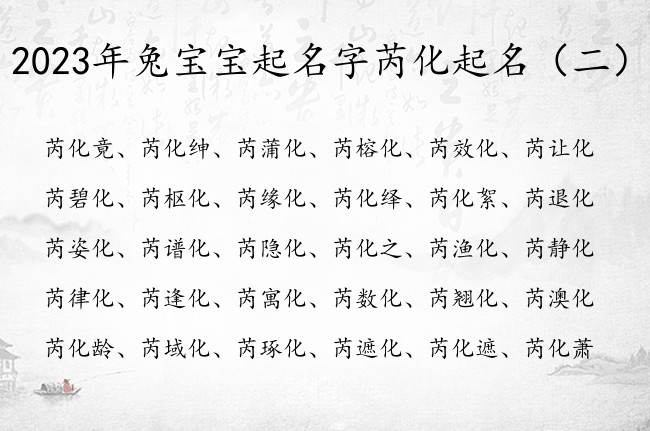 2023年兔宝宝起名字芮化起名（二）
芮化竟、芮化绅、芮蒲化、芮榕化、芮效化、芮让化
芮碧化、芮枢化、芮缘化、芮化绎、芮化絮、芮退化
芮姿化、芮谱化、芮隐化、芮化之、芮渔化、芮静化
芮律化、芮逢化、芮寓化、芮数化、芮翘化、芮澳化
芮化龄、芮域化、芮琢化、芮遮化、芮化遮、芮化萧